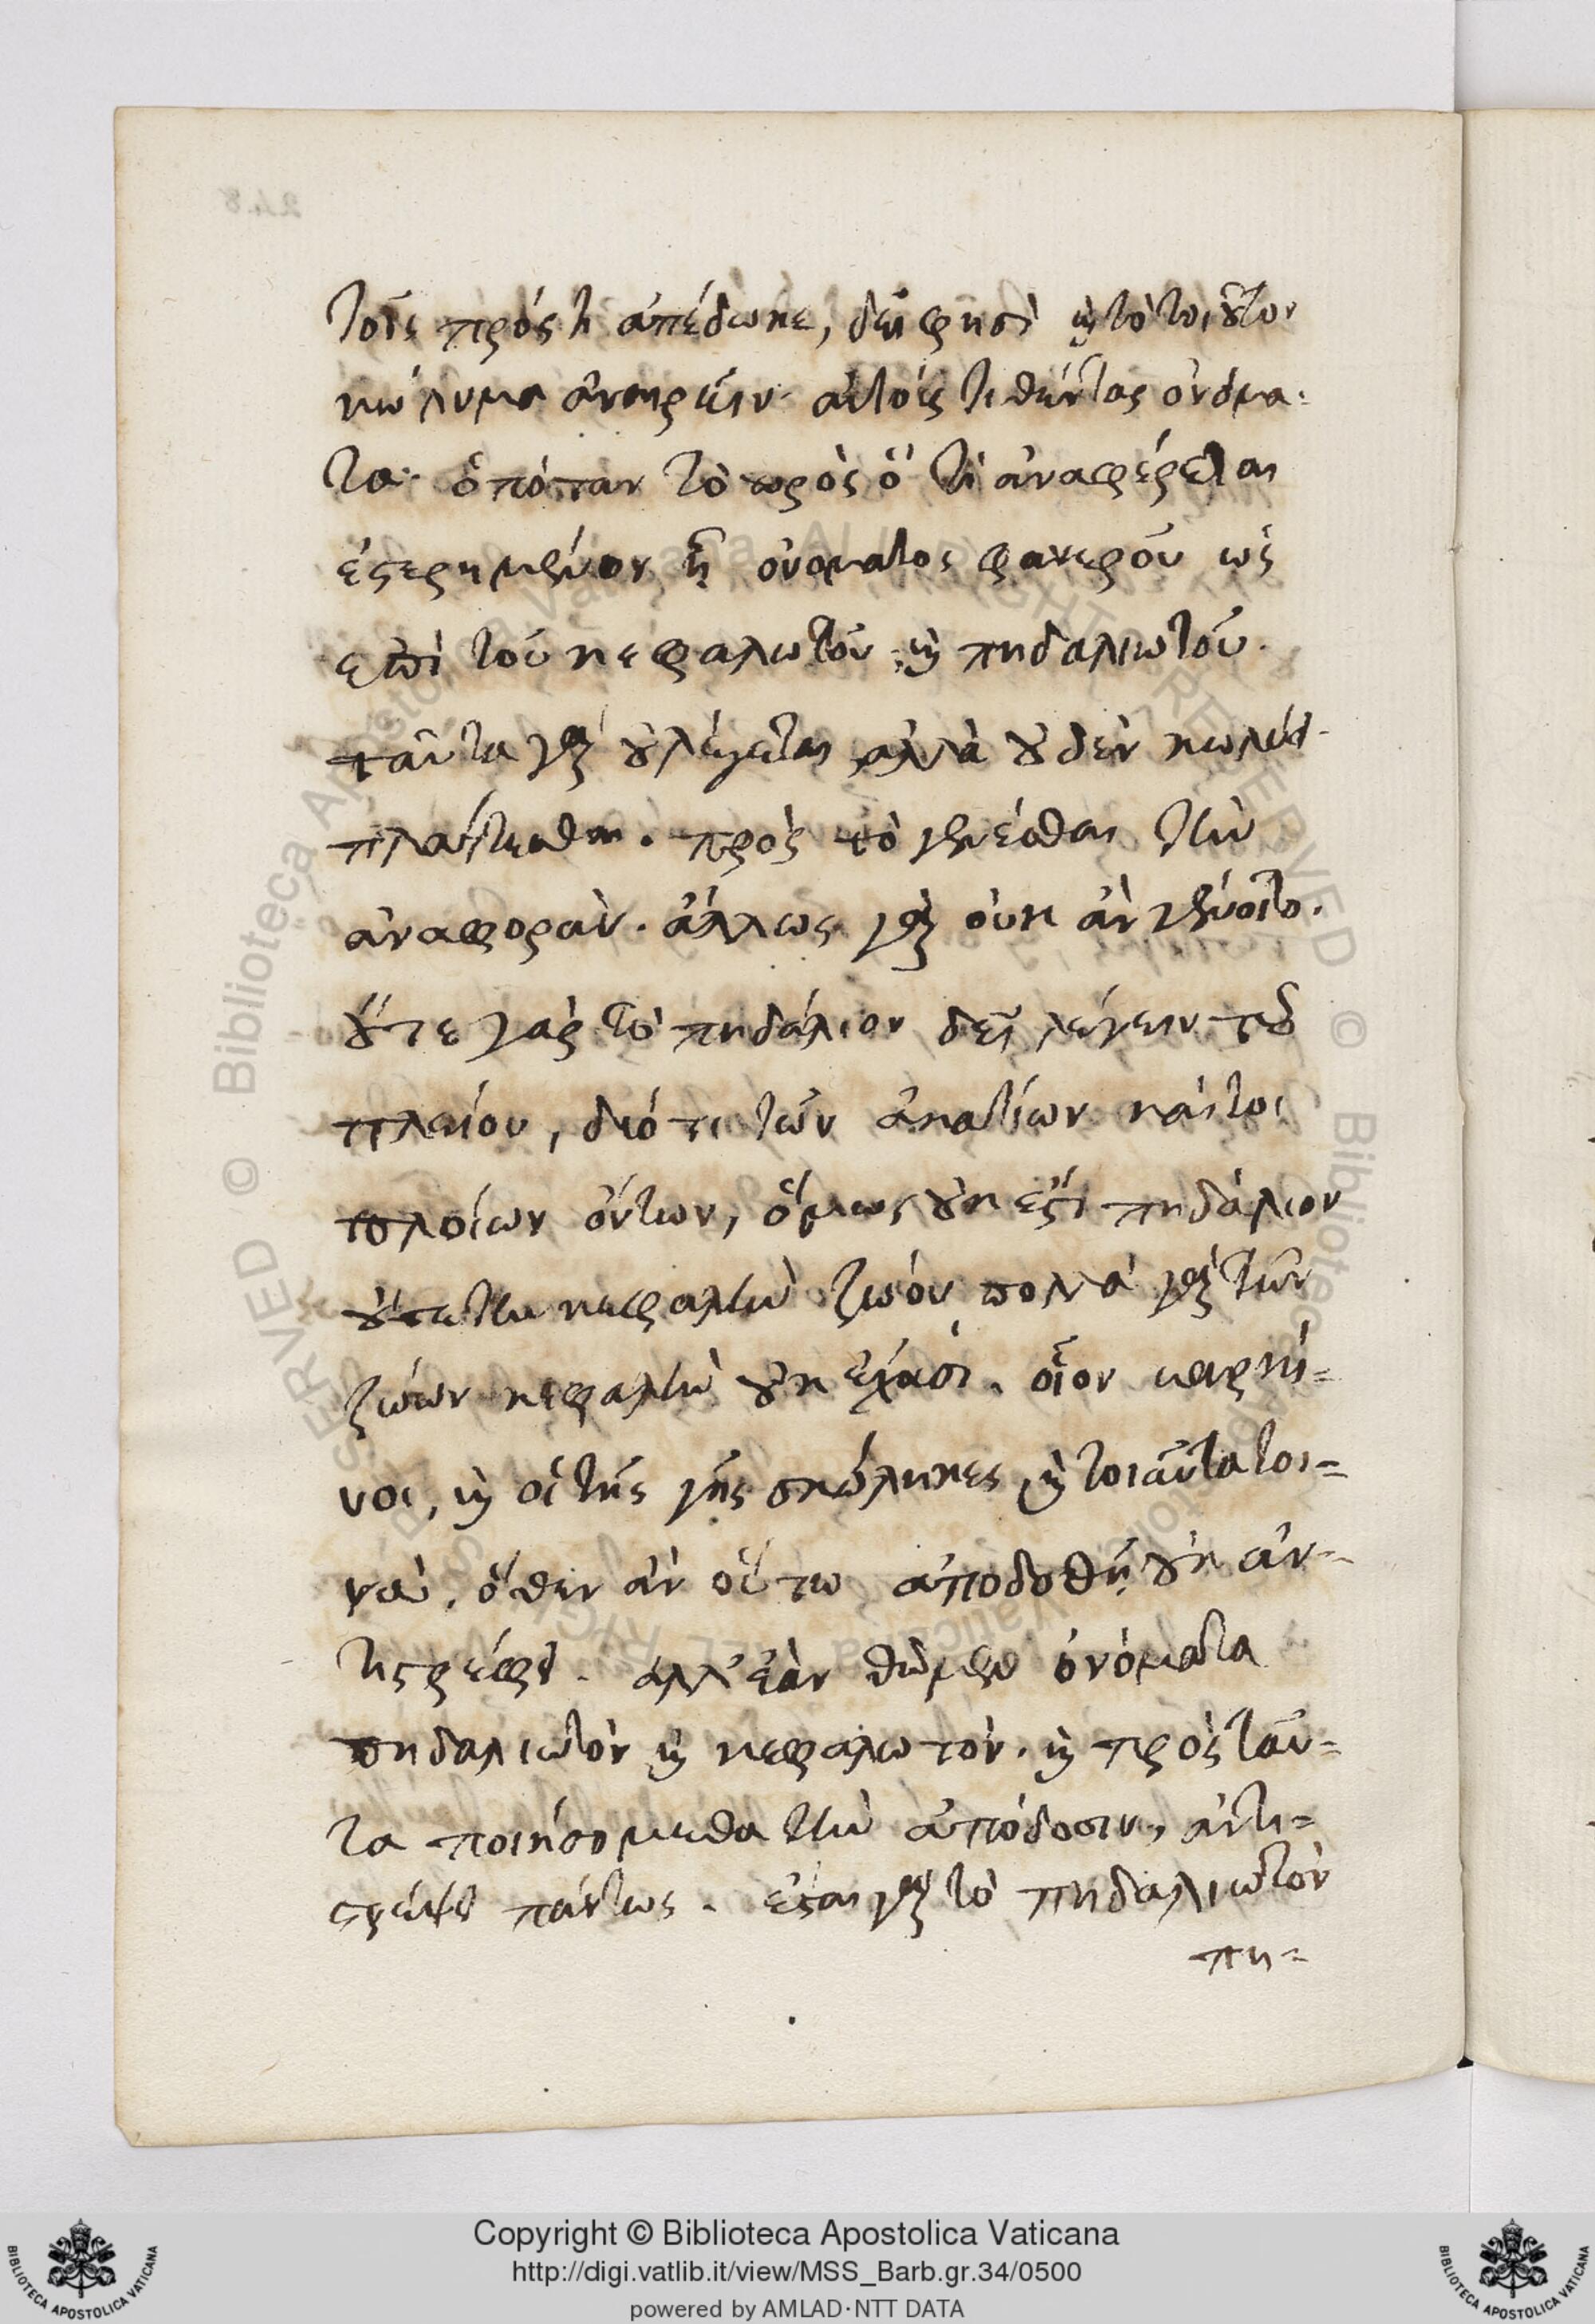 τοῖς πρός τι ἀπέδωκε, δεῖ φησὶ καὶ τὸ τοιοῦτον
κώλυμα ἀναιρεῖν αὐτοῖς τιθέντας ὀνόμα-
τα· ὁπόταν τὸ πρὸς ὅ τι ἀναφέρεται
ἐστερημένον ᾖ ὀνοματος φανεροῦ ὡς
επὶ τοῦ κεφαλωτοῦ καὶ πηδαλιωτοῦ.
ταῦτα γὰρ οὐ λέγεται ἀλλὰ οὐδὲν κωλύει
πλάττεσθαι. πρὸς τὸ γενέσθαι τὴν
ἀναφορὰν. ἄλλως γὰρ οὐκ ἂν γένοιτο.
οὔτε γὰρ τὸ πηδάλιον δεῖ λέγειν τοῦ
πλοίου, διότι τῶν ἀκατίων καίτοι
πλοίων ὄντων, ὅμως οὐκ ἔστι πηδάλιον
οὔτε τὴν κεφαλὴν ζώου πολλὰ γὰρ τῶν
ζώων κεφαλὴν οὐκ ἔχουσι. οἷον καρκί=
νοι, καὶ οἱ τῆς γῆς σκώληκες καὶ τοιαῦτα τοι=
νοι. ὅθεν ἂν οὕτω ἀποδοθῇ οὐκ ἀν=
τιστρέφει. ἀλλ' ἐὰν θῶμεν ὀνόματα
πηδαλιωτὸν καὶ κεφαλωτόν. καὶ πρὸς ταῦ=
τα ποιήσομεθα τὴν ἀπόδοσιν, ἀντι=
στρέψει πάντως. ἔσται γὰρ τὸ πηδαλιωτὸν
πη=
Copyright © Biblioteca Apostolica Vaticana
http://digi.vatlib.it/view/MSS_Barb.gr.34/0500
powered by AMLAD·NTT DATA